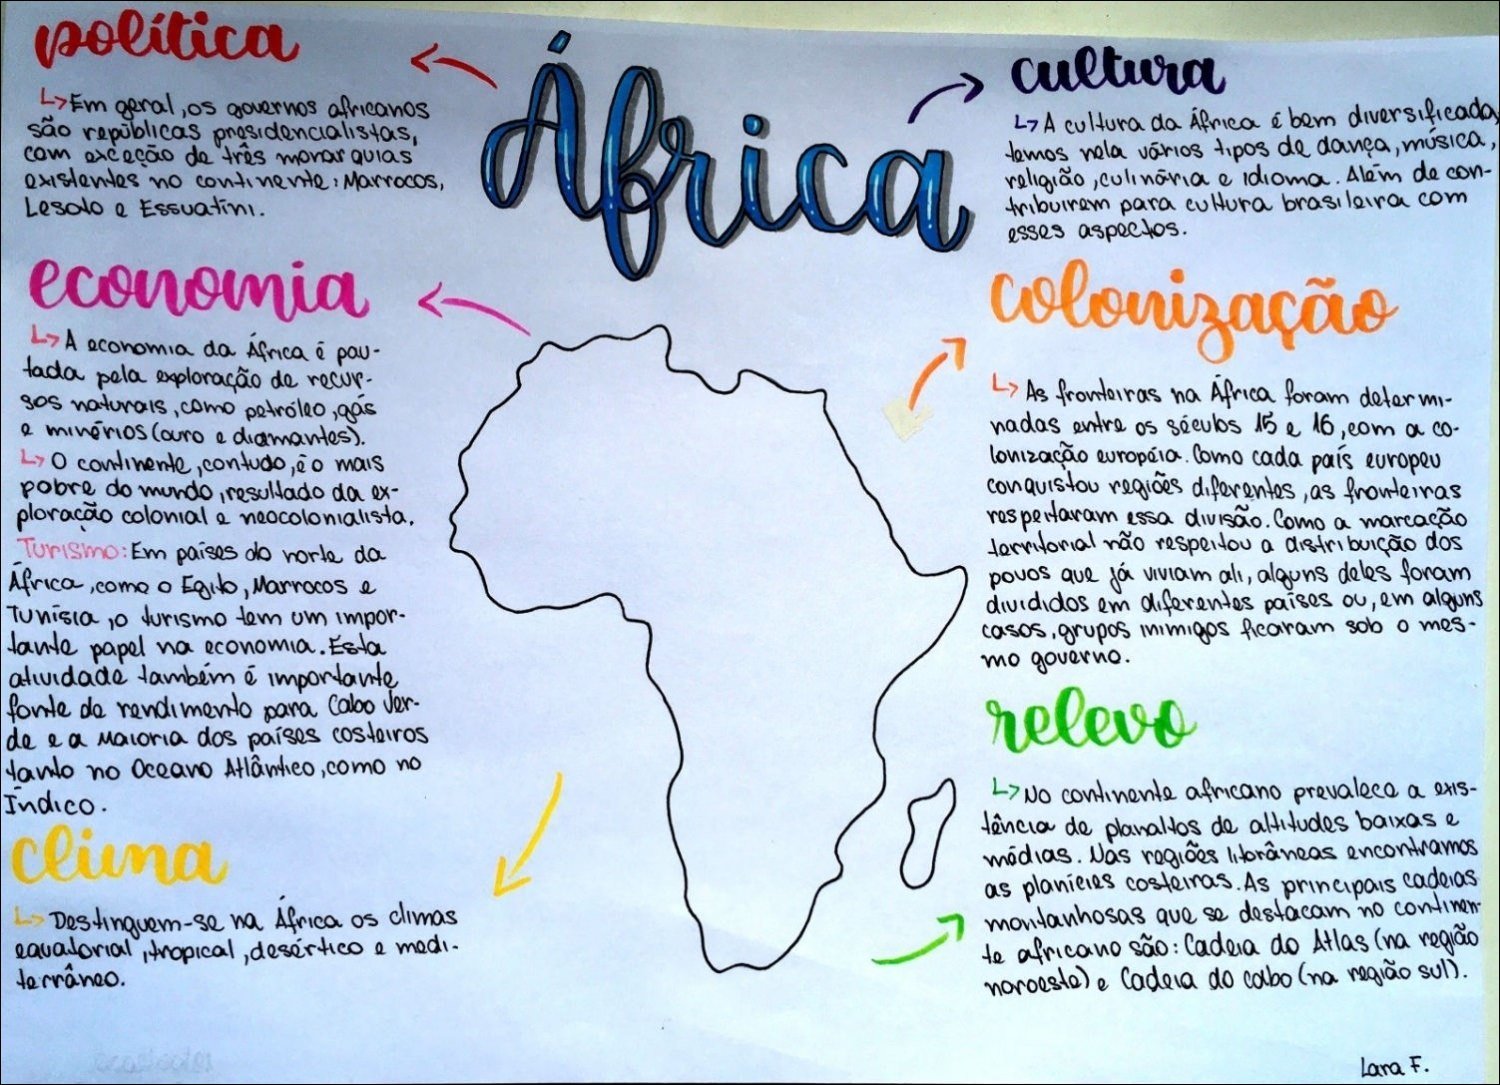 África
política
↳Em geral, os governos africanos
são repúblicas presidencialistas,
com exceção de três monarquias
existentes no continente: Marrocos,
Lesoto e Essuatíni.
economia
↳A economia da África é pau-
tada pela exploração de recur-
sos naturais, como petróleo, gás
e minérios (ouro e diamantes).
↳O continente, contudo, é o mais
pobre do mundo, resultado da ex-
ploração colonial e neocolonialista.
Turismo: Em países do norte da
África, como o Egito, Marrocos e
Tunísia, o turismo tem um impor-
tante papel na economia. Esta
atividade também é importante
fonte de rendimento para Cabo Ver-
de e a maioria dos países costeiros
tanto no Oceano Atlântico, como no
Índico.
clima
↳Destinguem-se na África os climas
equatorial, tropical, desértico e medi-
terrâneo.
cultura
↳A cultura da África é bem diversificada,
temos nela vários tipos de dança, música,
religião, culinária e idioma. Além de con-
tribuirem para cultura brasileira com
esses aspectos.
colonização
↳As fronteiras na África foram determi-
nadas entre os séculos 15 e 16, com a co-
lonização européia. Como cada país europeu
conquistou regiões diferentes, as fronteiras
respeitaram essa divisão. Como a marcação
territorial não respeitou a distribuição dos
povos que já viviam ali, alguns deles foram
divididos em diferentes países ou, em alguns
casos, grupos inimigos ficaram sob o mes-
mo governo.
relevo
↳No continente africano prevalece a exis-
tência de planaltos de altitudes baixas e
médias. Nas regiões litorâneas encontramos
as planícies costeiras. As principais cadeias
montanhosas que se destacam no continen-
te africano são: Cadeia do Atlas (na região
noroeste) e Cadeia do cabo (na região sul).
Lara F.